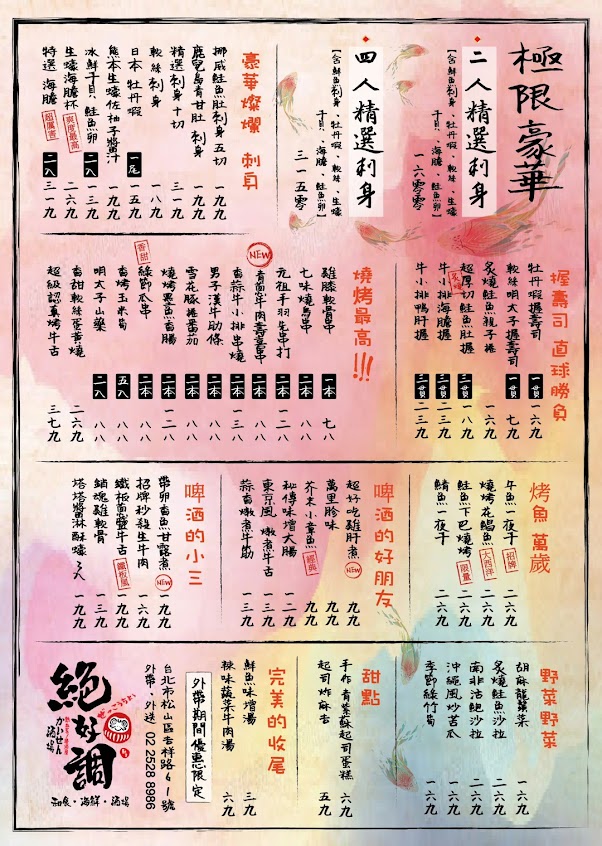 極限豪華
二人精選刺身
【含鮮魚刺身、牡丹蝦、軟絲、生蠔
干貝、海膽、鮭魚卵】
一六零零
四人精選刺身
【含鮮魚刺身、牡丹蝦、軟絲、生蠔
干貝、海膽、鮭魚卵】
三一五零
豪華燦爛 刺身
挪威鮭魚肚刺身五切 一九九
鹿兒島青甘肚刺身 一九九
精選刺身十切 三一九
軟絲刺身 一八九
日本 牡丹蝦 一尾 一五九
熊本生蠔佐柚子醬汁 一九九
冰鮮干貝 鮭魚卵 二入 一三九
生蠔海膽杯 爽度最高 二六九
特選 海膽 超厲害 二入 三一九
握壽司 直球勝負
牡丹蝦握壽司 一貫 一六九
軟絲明太子握壽司 一貫 七九
炙燒鮭魚親子握 一六九
超厚切鮭魚肚握 三貫 一八九
牛小排海膽握 三貫 三一九
牛小排鴨肝握 三貫 二三九
燒烤最高!!!
雞膝軟骨串 一本 七八
七味燒鳥串 二本 八八
元祖手羽先串打 二本 一八八
NEW
蒜蒜牛小排串燒 二本 一三八
男子漢牛肋條 二本 一八八
雪花豚捲番茄 二本 八八
燒烤墨魚香腸 二本 一二八
綠節瓜串 香甜 二本 八八
香烤玉米筍 五入 八八
明太子山藥 二入 八八
香甜軟絲蛋黃燒 二六九
超級認真烤牛舌 三七九
烤魚 萬歲
午魚一夜干 招牌 二六九
燒烤花鯛魚 大西洋 二六九
鮭魚下巴燒烤 限量 二六九
鯖魚一夜干 二六九
啤酒的好朋友
超好吃雞肝煮 NEW 九九
萬里腍味 九九
芥末小章魚 經典 九九
秘傳味增大腸 一二九
東京風 燉煮牛舌 一三九
蒜香燉煮牛肋 一三九
啤酒的小三
帶卵香魚甘露煮 NEW 九九
招牌秒殺生牛肉 一六九
鐵板蔥鹽牛舌 鐵板風 一九九
銷魂雞軟骨 一三九
塔塔醬淋酥蠔 3入 一九九
野菜野菜
胡麻龍葉菜 一六九
炙燒鮭魚沙拉 二六九
南非沽鮑沙拉 二六九
沖繩風炒苦瓜 一六九
季節綠竹筍 一六九
甜點
手作青蘋酥起司蛋糕 六九
起司炸麻吉 五九
完美的收尾
鮮魚味增湯 三九
辣味蔬菜牛肉湯 六九
外帶期間優惠限定
台北市松山區吉祥路61號
外帶、外送 02 2528 8986
ぜっこうちょう
絕好調
かいせん
酒場
和食・海鮮・酒場